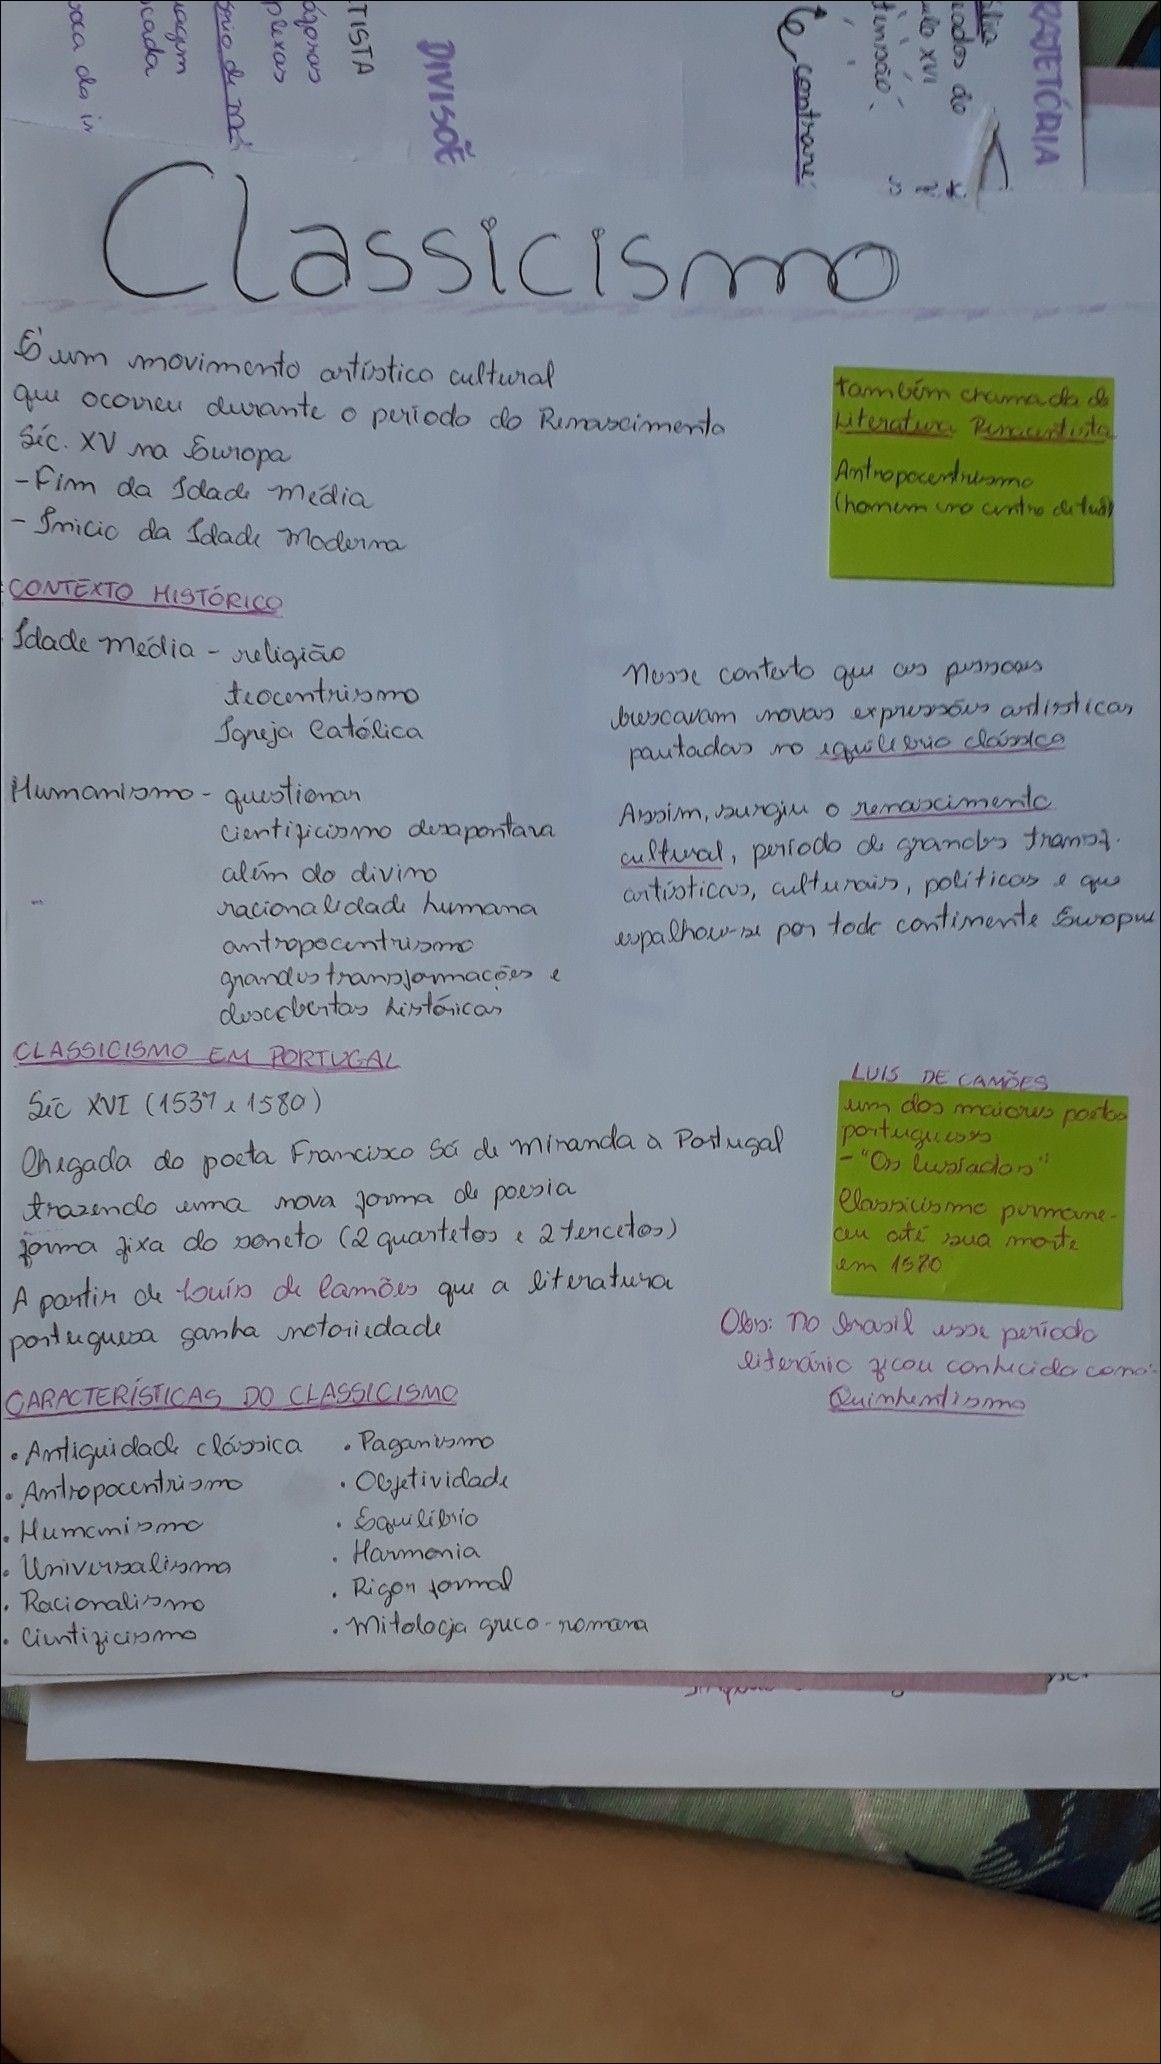 DIVISÕ
TISTA
RAJETÓRIA
Classicismo
É um movimento artístico cultural
que ocorreu durante o período do Renascimento
Séc. XV na Europa
- Fim da Idade Média
- Início da Idade Moderna
também chamada de
Literatura Renacentista
Antropocentrismo
(homem no centro de tudo)
CONTEXTO HISTÓRICO
Idade Média - religião
teocentrismo
Igreja Católica
Humanismo - questionar
cientificismo desapontara
além do divino
racionalidade humana
antropocentrismo
grandes transformações e
descobertas históricas
Nesse contexto que as pessoas
buscavam novas expressões artísticas
pautadas no equilíbrio clássico
Assim, surgiu o renascimento
cultural, período de grandes transf.
artísticas, culturais, políticas e que
espalhou-se por todo continente Europeu
CLASSICISMO EM PORTUGAL
Séc XVI (1537 e 1580)
Chegada do poeta Francisco Sá de Miranda a Portugal
trazendo uma nova forma de poesia
forma fixa do soneto (2 quartetos e 2 tercetos)
A partir de Louís de Camões que a literatura
portuguesa ganha notoriedade
LUIS DE CAMÕES
um dos maiores poetas
portugueses
- "Os Lusíadas"
Classicismo permane-
ceu até sua morte
em 1580
Obs: No Brasil esse período
literário ficou conhecido como:
Quinhentismo
CARACTERÍSTICAS DO CLASSICISMO
• Antiguidade clássica
• Antropocentrismo
• Humanismo
• Universalismo
• Racionalismo
• Cientificismo
• Paganismo
• Objetividade
• Equilíbrio
• Harmonia
• Rigor formal
• Mitologia greco-romana